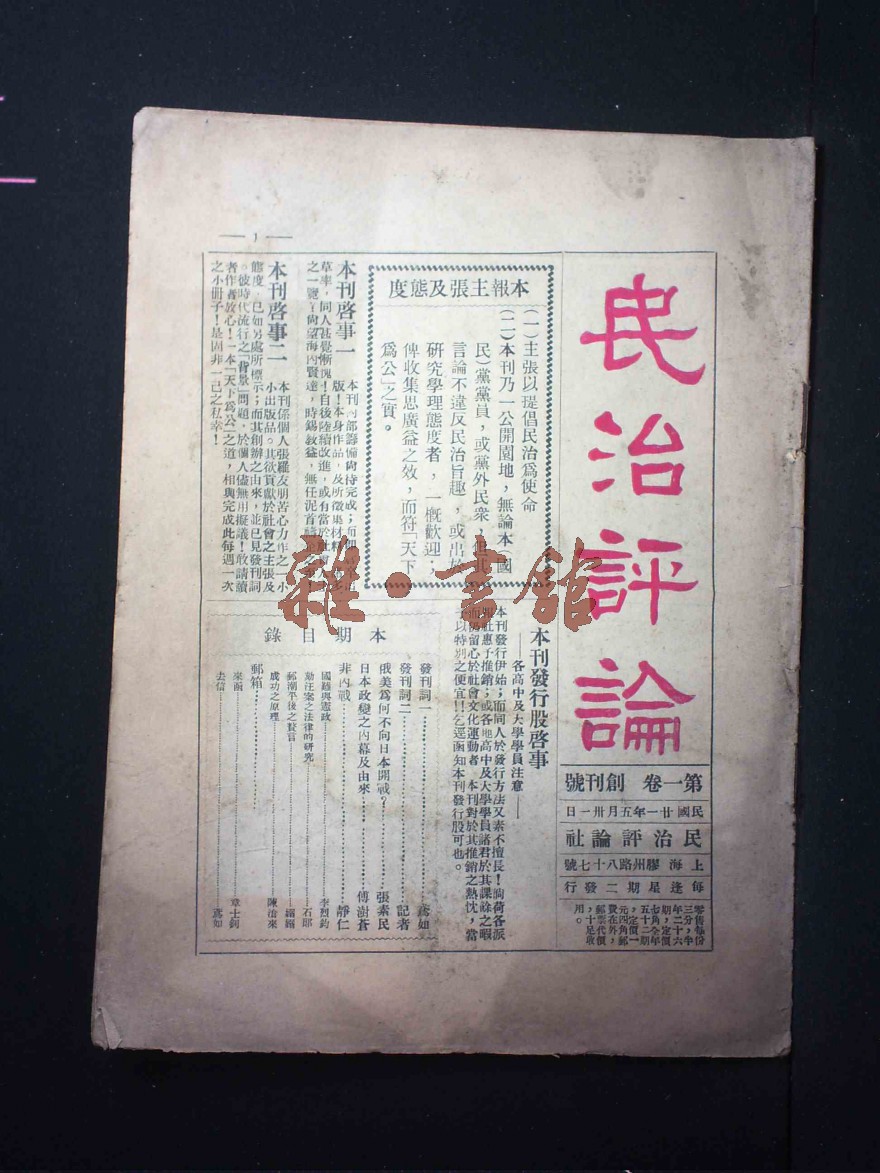 民治評論
第一卷 創刊號
民國廿一年五月卅一日
民治評論社
上海膠州路八十七號
每逢星期二發行
零售每份
三分，半
年二十六
期，定價
七角，全年
五十二期
，定價一
元四角，郵
費在外，
郵票代價
，十足收
用。
本報主張及態度
(一)主張以提倡民治為使命
(二)本刊乃一公開園地，無論本(國
民)黨黨員，或黨外民衆，但其
言論不違反民治旨趣，或出於
研究學理態度者，一概歡迎；
俾收集思廣益之效，而符「天下
為公」之實。
本刊啓事一
本刊內部籌備尚待完成；而
版！本身作品，及所徵集材料
草率，同人甚覺慚愧！自後陸續改進，或有當於
之一覽，尚望海內賢達，時錫敎益，無任泥首
本刊啓事二
本刊係個人張羅友朋苦心力作之一小
小出版品。其欲貢獻於社會之主張及
態度，已如另處所標示；而其創辦之由來，並已見發刊詞
。彼時代流行之「背景」問題，於個人儘無用擬議！敢請讀
者作者放心！一本「天下為公」之道，相與完成此每週一次
之小冊子！是固非一己之私幸！
本刊發行股啓事
——各高中及大學學員注意——
本刊發行伊始；而同人於發行方法又素不擅長！倘荷各派
報社惠予推銷；或各地高中及大學學員諸君於其課餘之暇
而仍留心於社會文化運動者，本刊對於其推銷之熱忱，當
予以特別之便宜！！乞逕函知本刊發行股可也。
本期目錄
發刊詞一……鳶如
發刊詞二……記者
俄美為何不向日本開戰？……張素民
日本政變之內幕及由來……傅澍蒼
非內戰……靜仁
國難與憲政……李烈鈞
勛汪案之法律的研究……石郎
郵潮平後之贅言
成功之原理……陳治來
郵箱
來函……章士釗
去信……鳶如
雜·書館